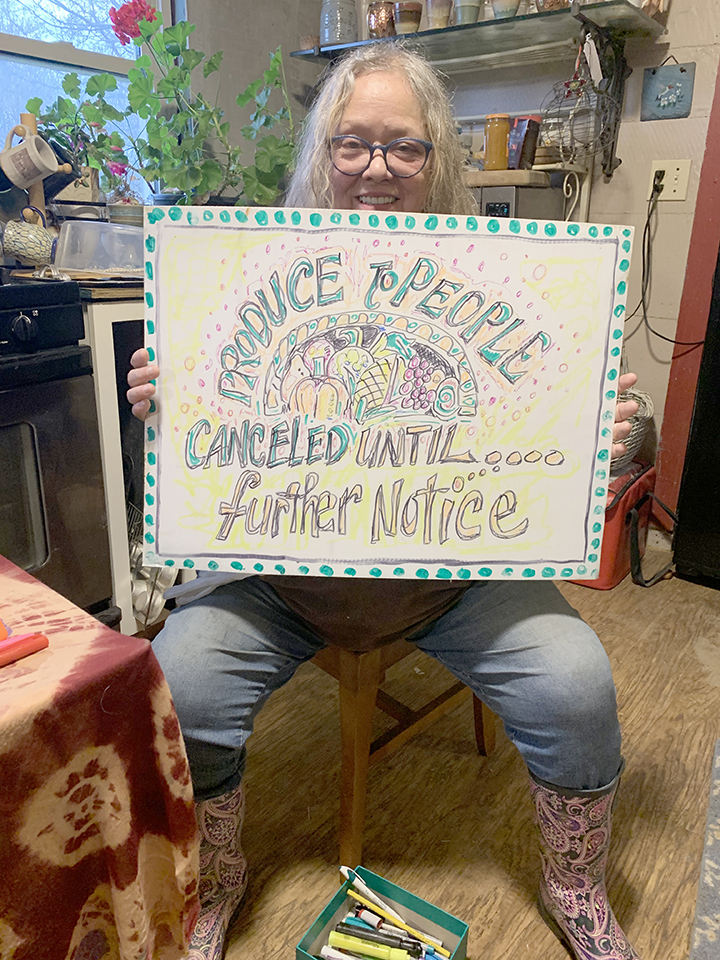 PRODUCE To PEOPLE
CANCELED UNTIL........
further Notice